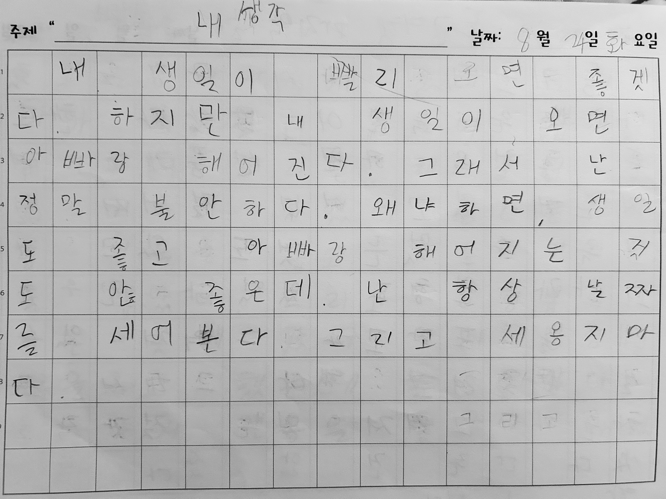 주제 " 내 생각 " 날짜: 8월 21일 화요일
내 생일이 빨리 오면 좋겟
다. 하지만 내 생일이 오면
아빠랑 해어진다. 그래서 난
정말 불안하다. 왜냐하면, 생일
도 좋고 아빠랑 해어지는 것
도 안 좋은데. 난 항상 날짜
를 세어본다. 그리고 세
다.
그리고